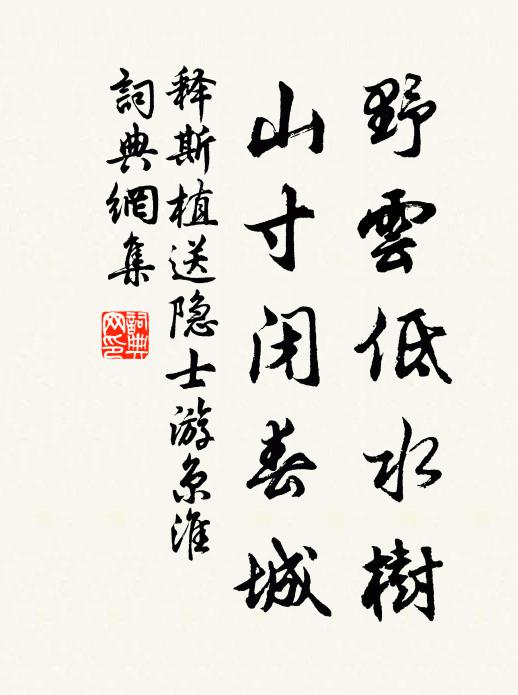 野雲低水樹
山寸闭春城
释斯植送隐士游京淮
詞典網集
詞典網印